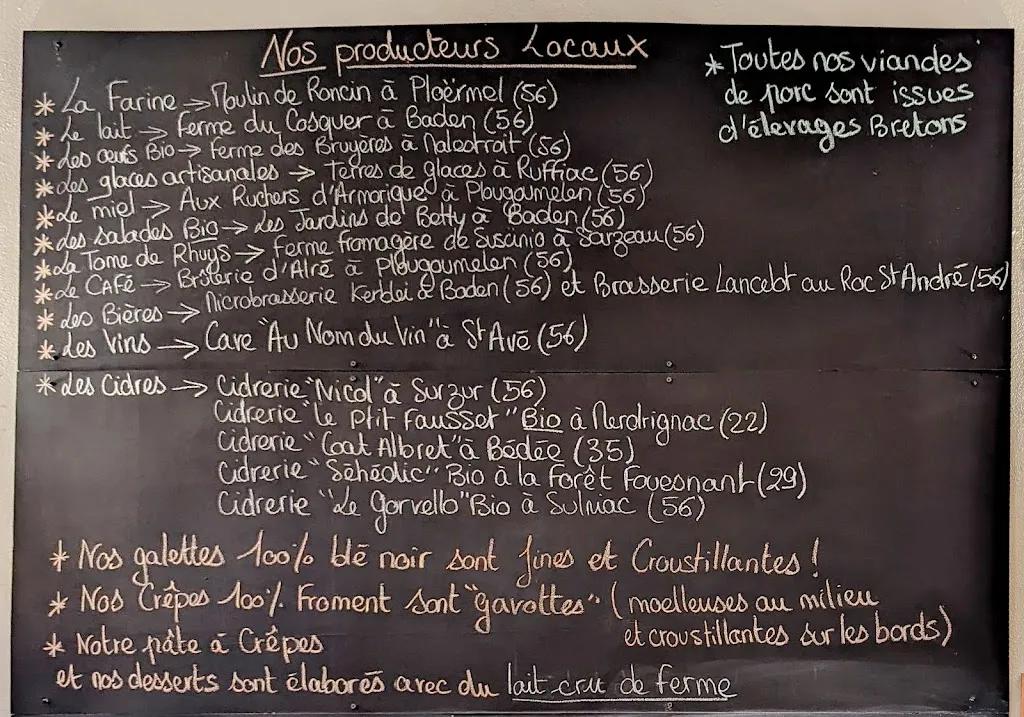 Nos producteurs Locaux
* Toutes nos viandes
de porc sont issues
d'élevages Bretons
* La Farine → Moulin de Roncin à Ploërmel (56)
* Le lait → Ferme du Cosquer à Baden (56)
* Les œufs Bio → Ferme des Bruyères à Malestroit (56)
* Les glaces artisanales → Terres de glaces à Ruffiac (56)
* Le miel → Aux Ruchers d'Armorique à Plougoumelen (56)
* Les salades Bio → Les Jardins de Betty à Baden (56)
* La Tome de Rhuys → Ferme fromagère de Suscinio à Sarzeau (56)
* Le CAFé → Brûlerie d'Alré à Plougoumelen (56)
* Les Bières → Microbrasserie Kerblei à Baden (56) et Brasserie Lancelot au Roc St André (56)
* Les Vins → Cave "Au Nom du Vin" à St Avé (56)
* Les Cidres → Cidrerie "Nicol" à Surzur (56)
Cidrerie "Le P'tit Fausset" Bio à Merdrignac (22)
Cidrerie "Coat Albret" à Bédée (35)
Cidrerie "Séhédic" Bio à la Forêt Fouesnant (29)
Cidrerie "Le Gorvello" Bio à Sulniac (56)
* Nos galettes 100% blé noir sont fines et Croustillantes !
* Nos Crêpes 100% Froment sont "gavottes" (moelleuses au milieu
et croustillantes sur les bords)
* Notre pâte à Crêpes
et nos desserts sont élaborés avec du lait cru de ferme